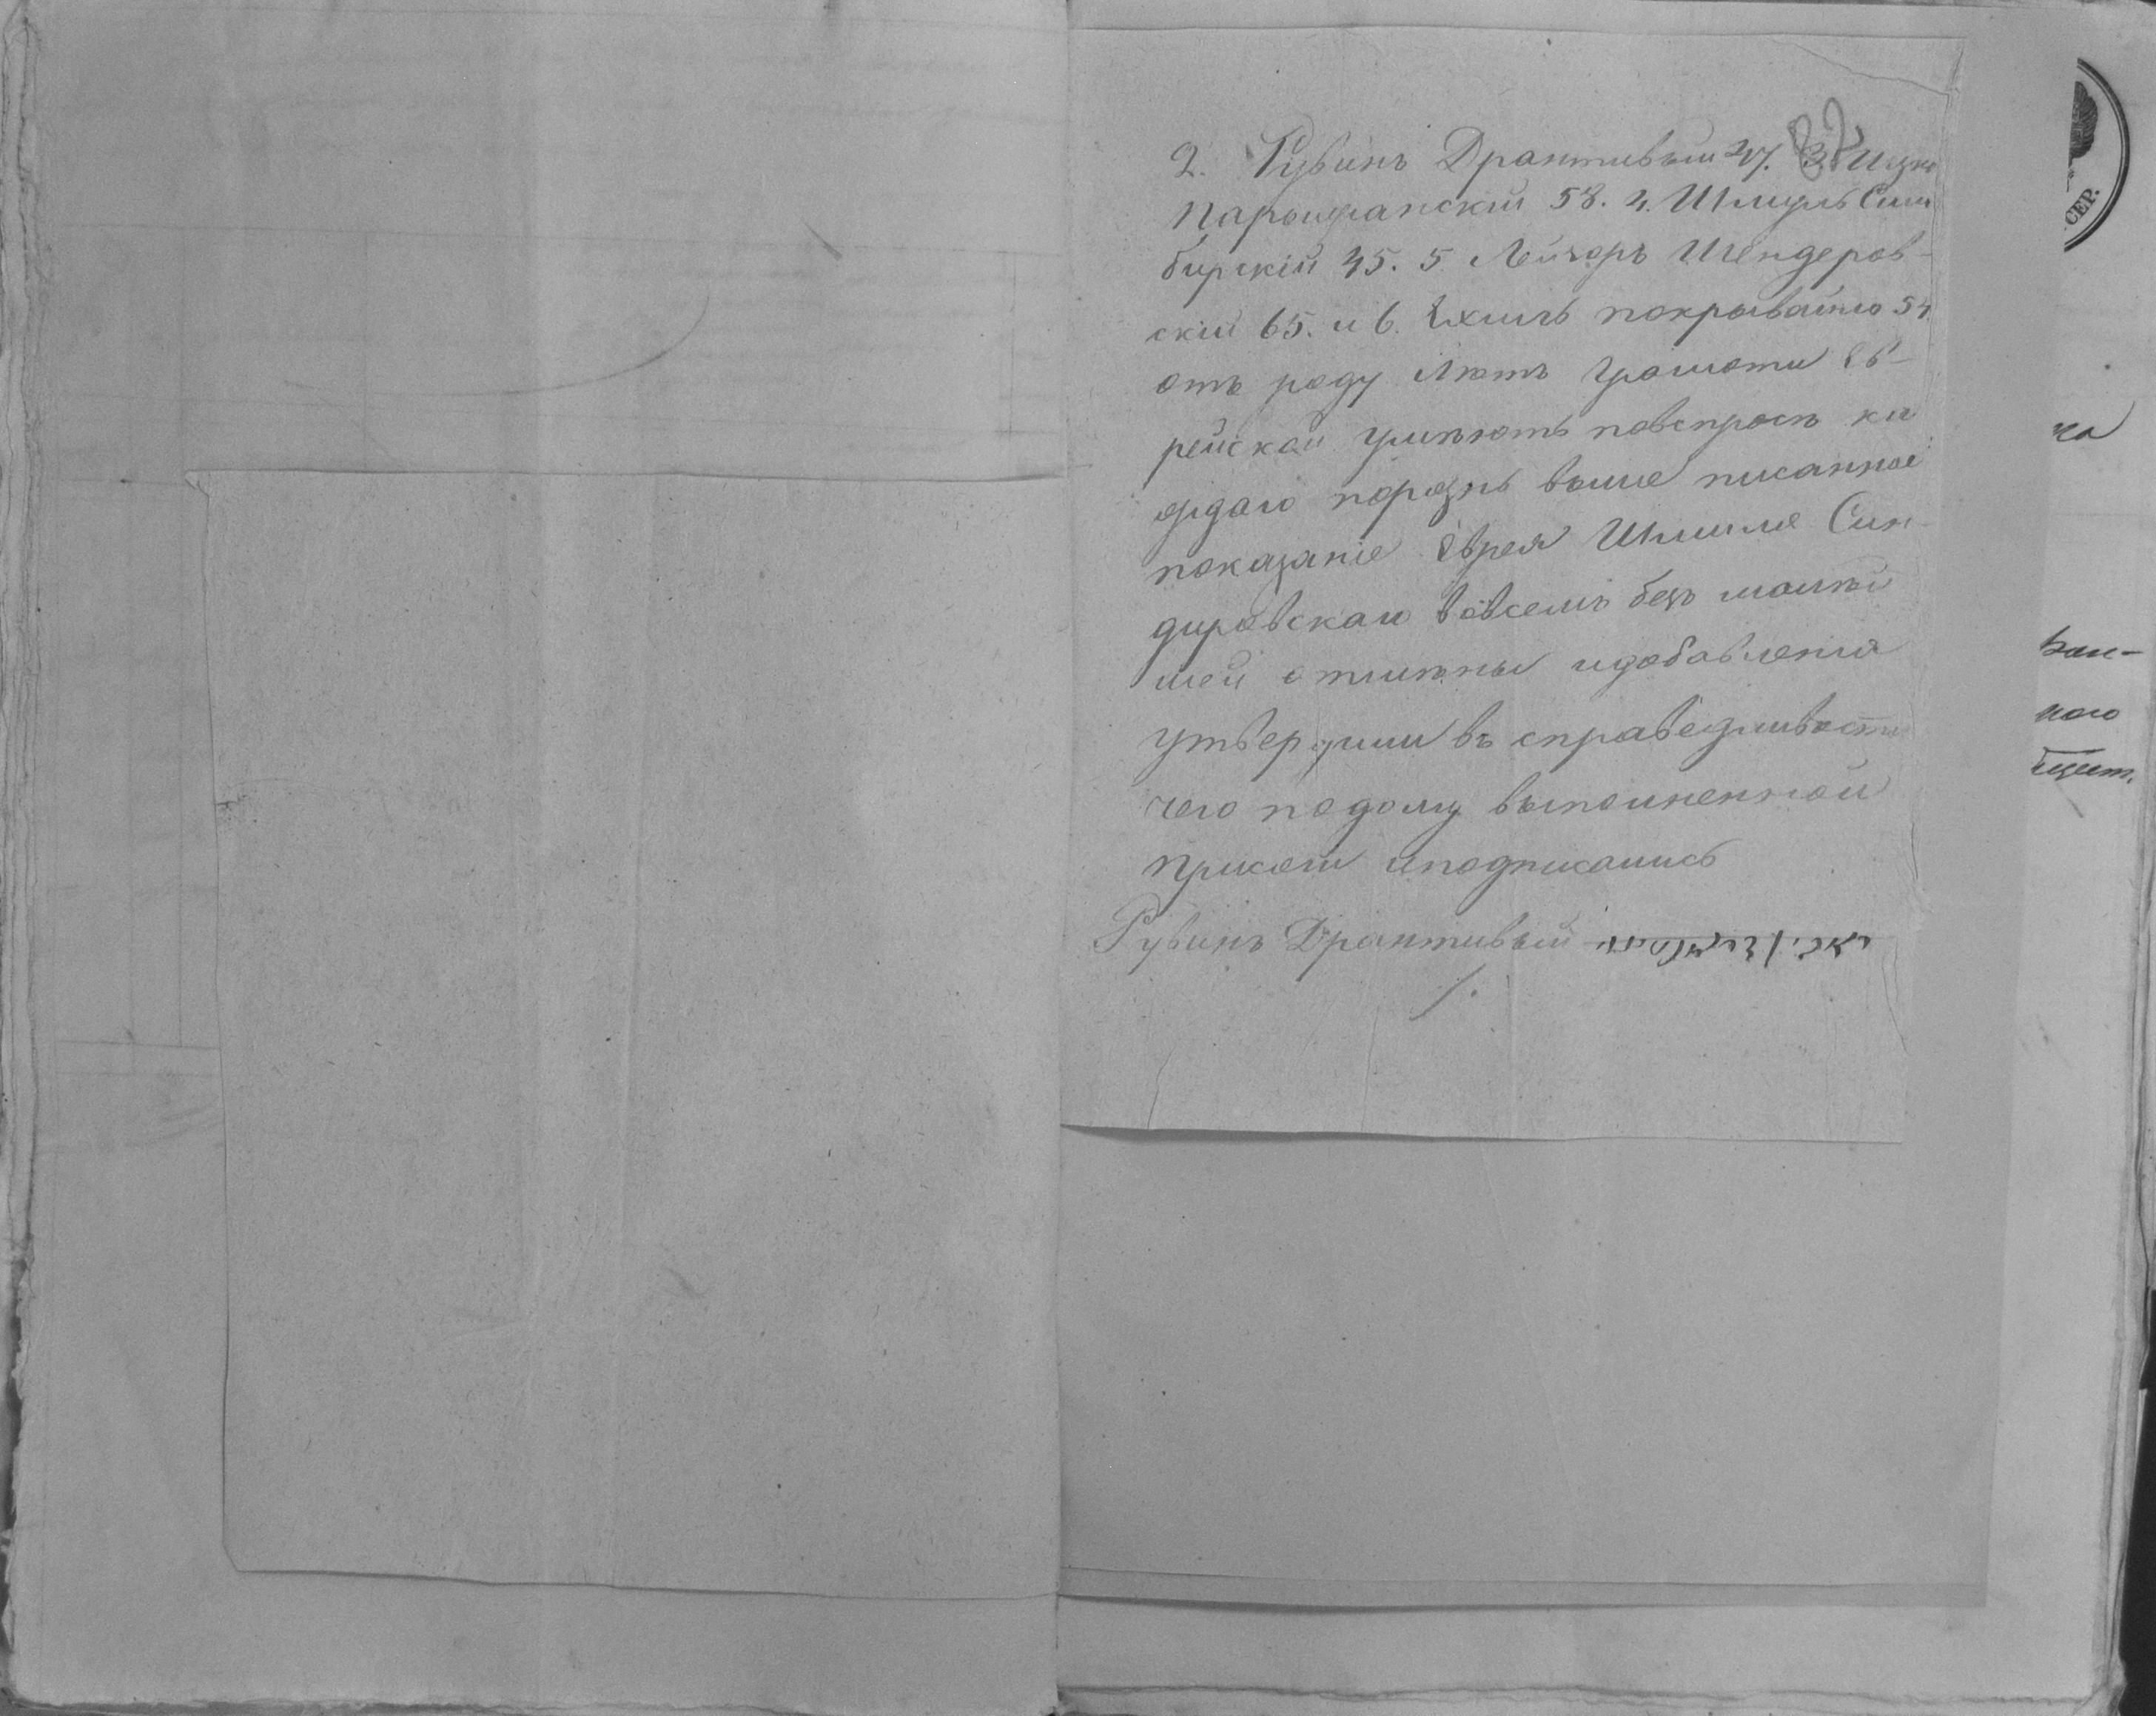 82
2. Рувинъ Драктивый 47. 3. Ицко
Нарышанскій 58. 4. Шмуль Сим
бирскій 45. 5 Лейзоръ Шендеров-
скій 65. и 6. Ехиль покрывайло 54.
отъ роду лѣтъ грамоти Ев-
рейской умѣютъ повспросѣ ка
ждаго порознь выше писанное
показаніе Еврея Шмиле Син-
дировскаго вовсемъ безъ малѣй
шей отмѣны идобавленія
утвердили въ справедливости
чего подому выполненной
присяги иподписались
Рувинъ Драктивый
/.
ка
кого
СЕР.